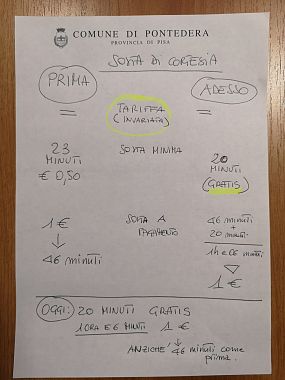 COMUNE DI PONTEDERA
PROVINCIA DI PISA
SOSTA DI CORTESIA
PRIMA
ADESSO
=
TARIFFA
(INVARIATA)
=
23
MINUTI
€ 0,50
SOSTA MINIMA
20
MINUTI
GRATIS
1 €
↓
46 minuti
SOSTA A
PAGAMENTO
46 minuti
+
20 minuti
1h e 06 minuti
1 €
OGGI: 20 MINUTI GRATIS
1 ORA E 6 MINUTI 1 €
ANZICHÉ 46 minuti come
prima.